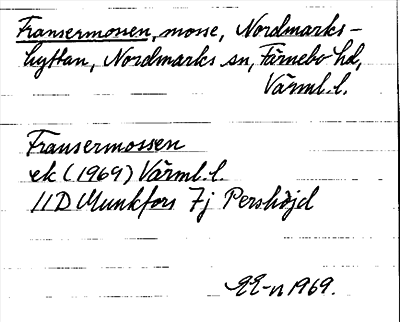 Fransermossen, mosse, Nordmarks-
hyttan, Nordmarks sn, Färnebo hd,
Värml. l.
Fransermossen
ek (1969) Värml. l.
11D Munkfors 7j Pershöjd
1969.